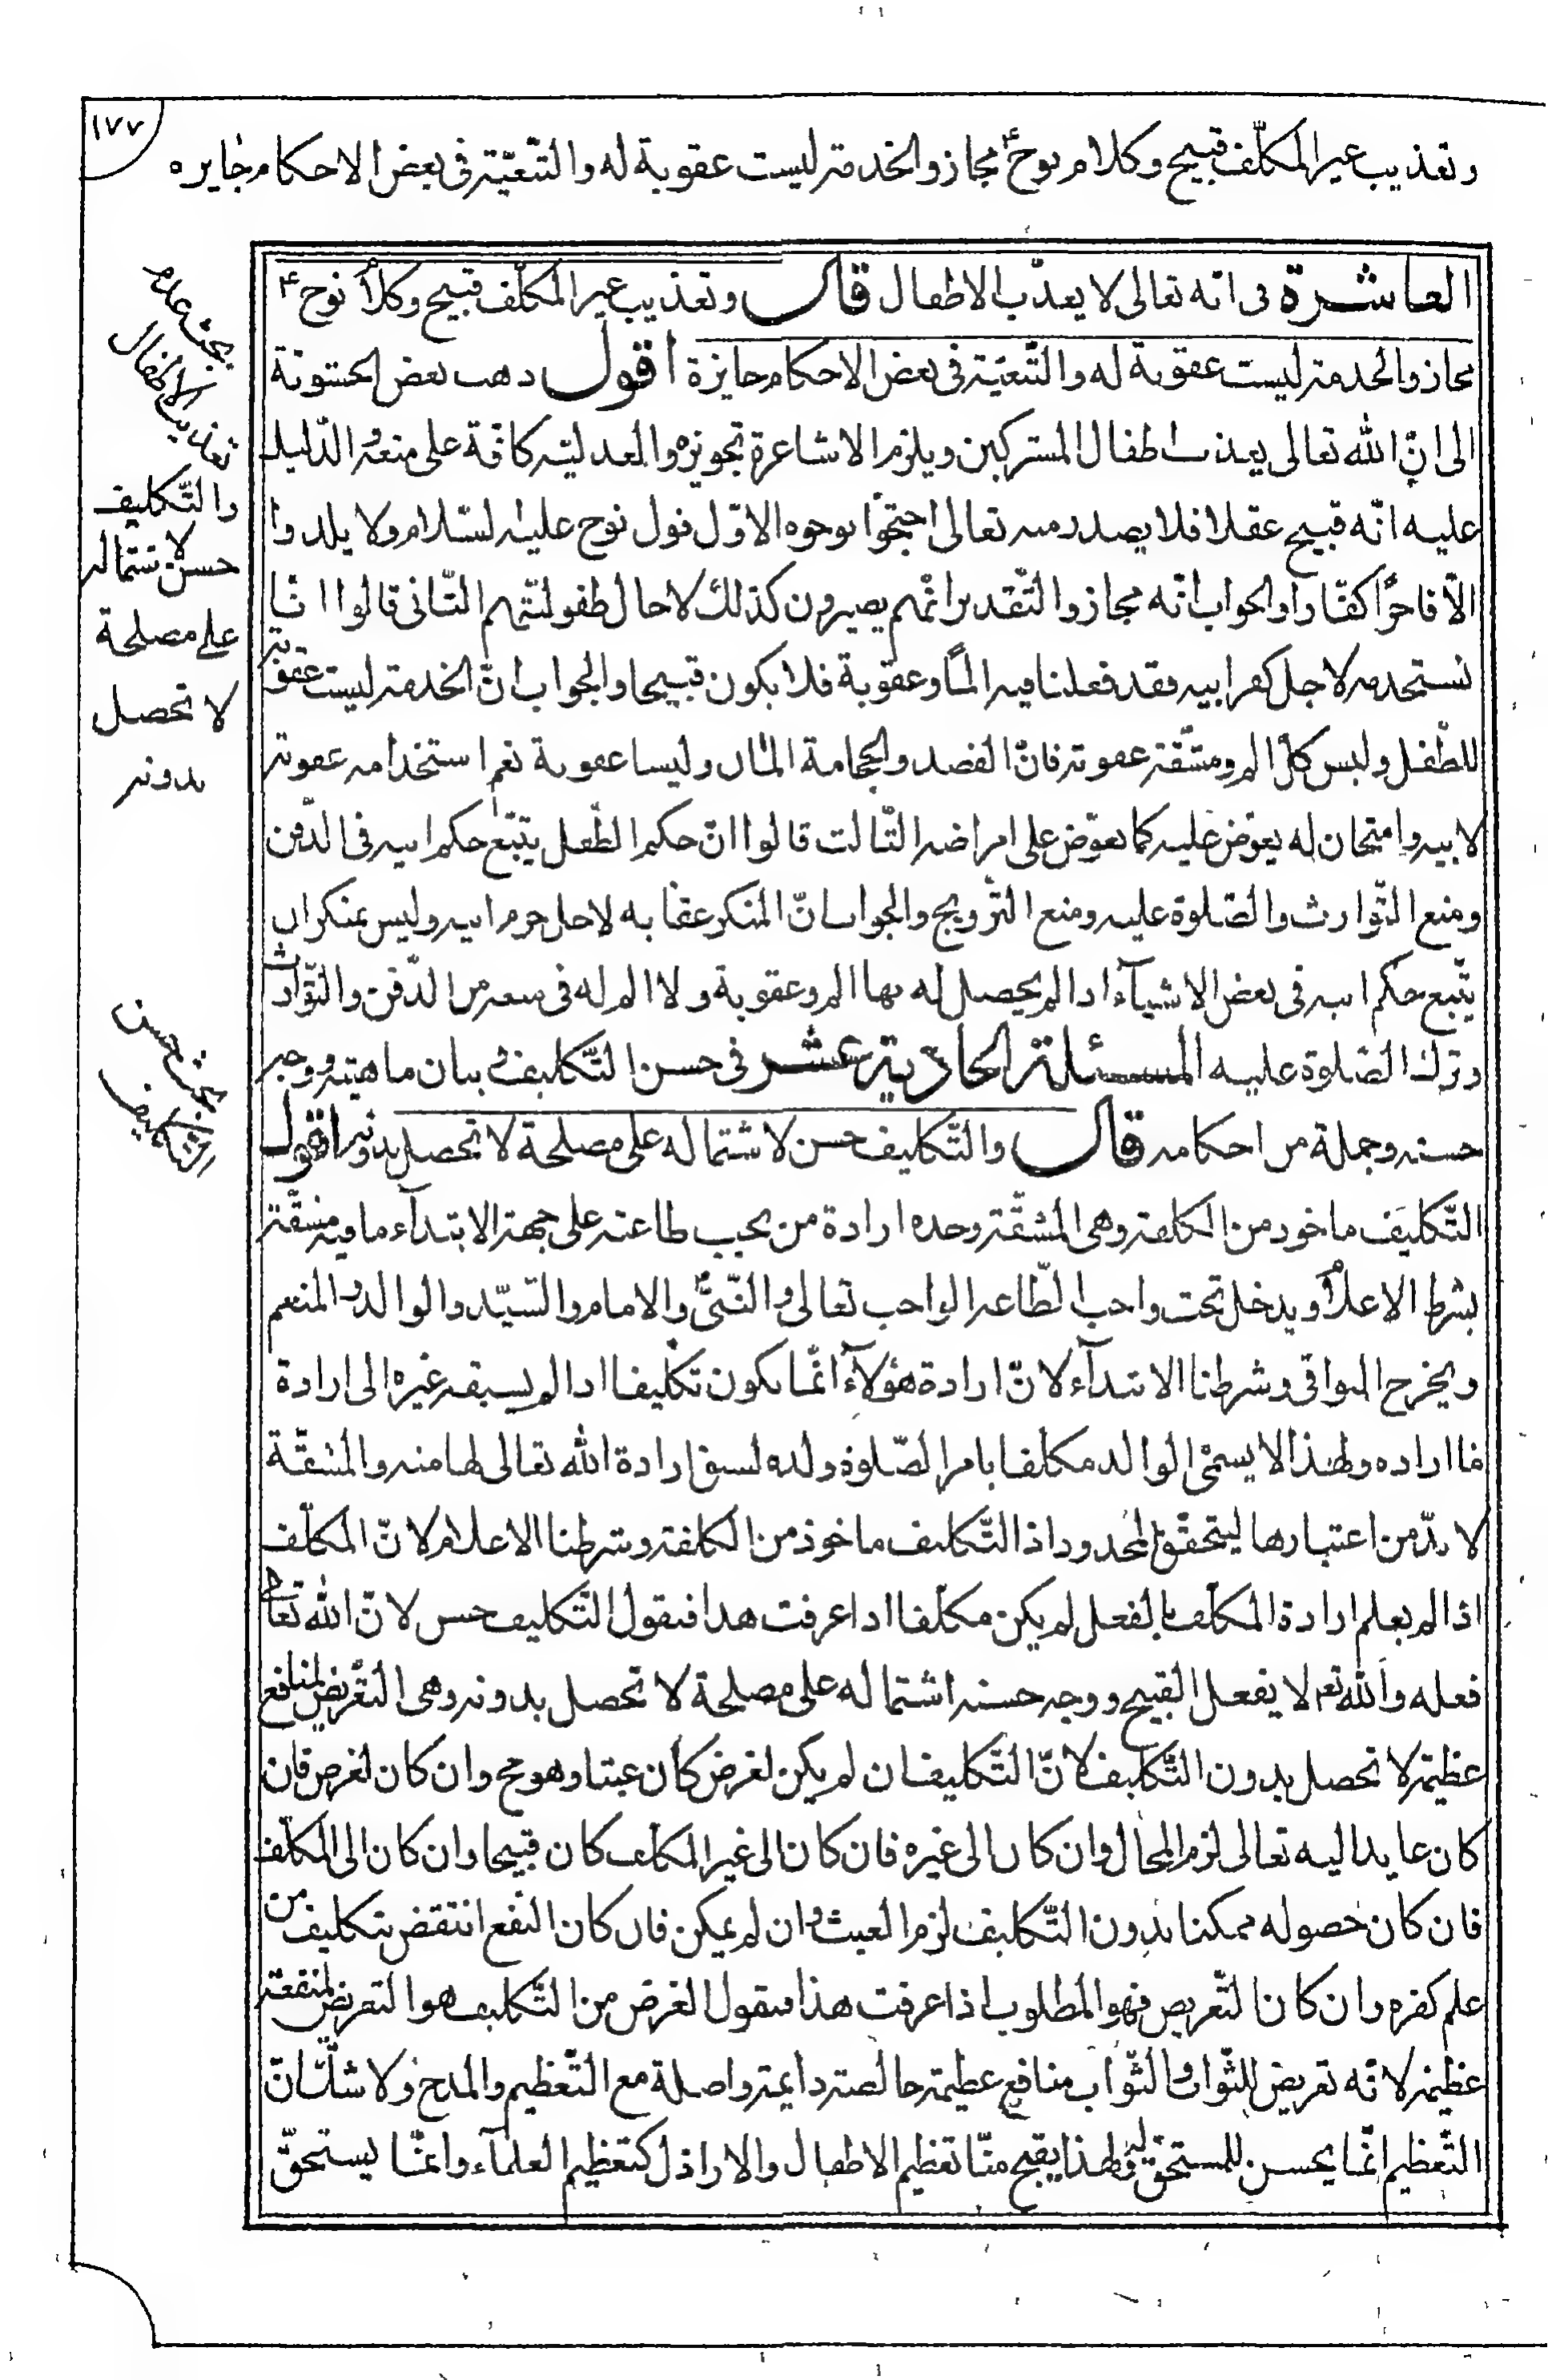 ١٧٧
وتعذيب غير المكلّف قبيح وكلام نوح ع مجاز والخدمة ليست عقوبة له والتّبعيّة في بعض الاحكام جايزه
العاشرة في انه تعالى لا يعذّب الاطفال قال وتعذيب غير المكلّف قبيح وكلام نوح ع
مجاز والخدمة ليست عقوبة له والتّبعيّة في بعض الاحكام جايزة اقول ذهب بعض الحشوية
الى انّ الله تعالى يعذب اطفال المشركين ويلزم الاشاعرة تجويزه والعدليّة كافّة على منعه والدّليل
عليه انّه قبيح عقلا فلا يصدر منه تعالى احتجّوا بوجوه الاوّل قول نوح عليه السّلام ولا يلدوا
الّا فاجرًا كفّارا والجواب انّه مجاز والتّقدير انّهم يصيرون كذلك لا حال طفوليّتهم الثّاني قالوا انّا
نستخدمه لاجل كفر ابيه فقد فعلنا فيه المًا وعقوبة فلا يكون قبيحا والجواب انّ الخدمة ليست عقوبة
للطّفل وليس كلّ الم ومشّقة عقوبة فانّ الفصد والحجامة المان وليسا عقوبة نعم استخدامه عقوبة
لابيه وامتحان له يعوّض عليه كما يعوّض على امراضه الثّالث قالوا انّ حكم الطّفل يتبع حكم ابيه في الدّفن
ومنع التّوارث والصّلوة عليه ومنع التّزويج والجواب انّ المنكر عقابه لاجل جرم ابيه وليس بمنكر ان
يتّبع حكم ابيه في بعض الاشيآء اذا لم يحصل له بها الم وعقوبة ولا الم له في منعه من الدّفن والتّوارث
وترك الصّلوة عليه المسئلة الحادية عشر في حسن التّكليف وبيان ماهيّته ووجه
حسنه وجملة من احكامه قال والتّكليف حسن لاشتماله على مصلحة لا تحصل بدونه اقول
التّكليف ماخوذ من الكلفة وهي المشقّة وحده ارادة من يجب طاعته على جهة الابتدآء ما فيه مشقّة
بشرط الاعلام ويدخل تحت واجب الطّاعة الواجب تعالى والنّبيّ والامام والسّيّد والوالد والمنعم
ويخرج البواقي وشرطنا الابتدآء لانّ ارادة هؤلآء انّما يكون تكليفا اذا لم يسبقه غيره الى ارادة
ما اراده ولهذا لا يسمّى الوالد مكلفا بامر الصّلوة ولده لسبق ارادة الله تعالى لها منه والمشقّة
لا بدّ من اعتبارها ليتحقّق المحدود اذ التّكليف ماخوذ من الكلفة وشرطنا الاعلام لانّ المكلّف
اذا لم يعلم ارادة المكلّف بالفعل لم يكن مكلّفا اذا عرفت هذا فنقول التّكليف حسن لانّ الله تعالى
فعله والله تعم لا يفعل القبيح ووجه حسنه اشتماله على مصلحة لا تحصل بدونه وهي التّعريض لمنافع
عظيمة لا تحصل بدون التّكليف لانّ التّكليف ان لم يكن لغرض كان عبثا وهو مح وان كان لغرض فان
كان عايدا اليه تعالى لزم المحال وان كان الى غيره فان كان الى غير المكلف كان قبيحا وان كان الى المكلّف
فان كان حصوله ممكنا بدون التّكليف لزم العبث وان لم يمكن فان كان النفع انتقض بتكليف من
علم كفره وان كان التّعريض فهو المطلوب اذا عرفت هذا فنقول الغرض من التّكليف هو التعريض لمنفعة
عظيمة لانّه تعريض للثّواب والثّواب منافع عظيمة خالصة دايمة واصلة مع التّعظيم والمدح ولا شكّ انّ
التّعظيم انّما يحسن للمستحقّ له ولهذا يقبح منّا تعظيم الاطفال والاراذل كتعظيم العلمآء وانّما يستحقّ
بحث عدم
تعذيب الاطفال
والتّكليف
حسن لاشتماله
على مصلحة
لا تحصل
بدونه
بحث حسن
التّكليف